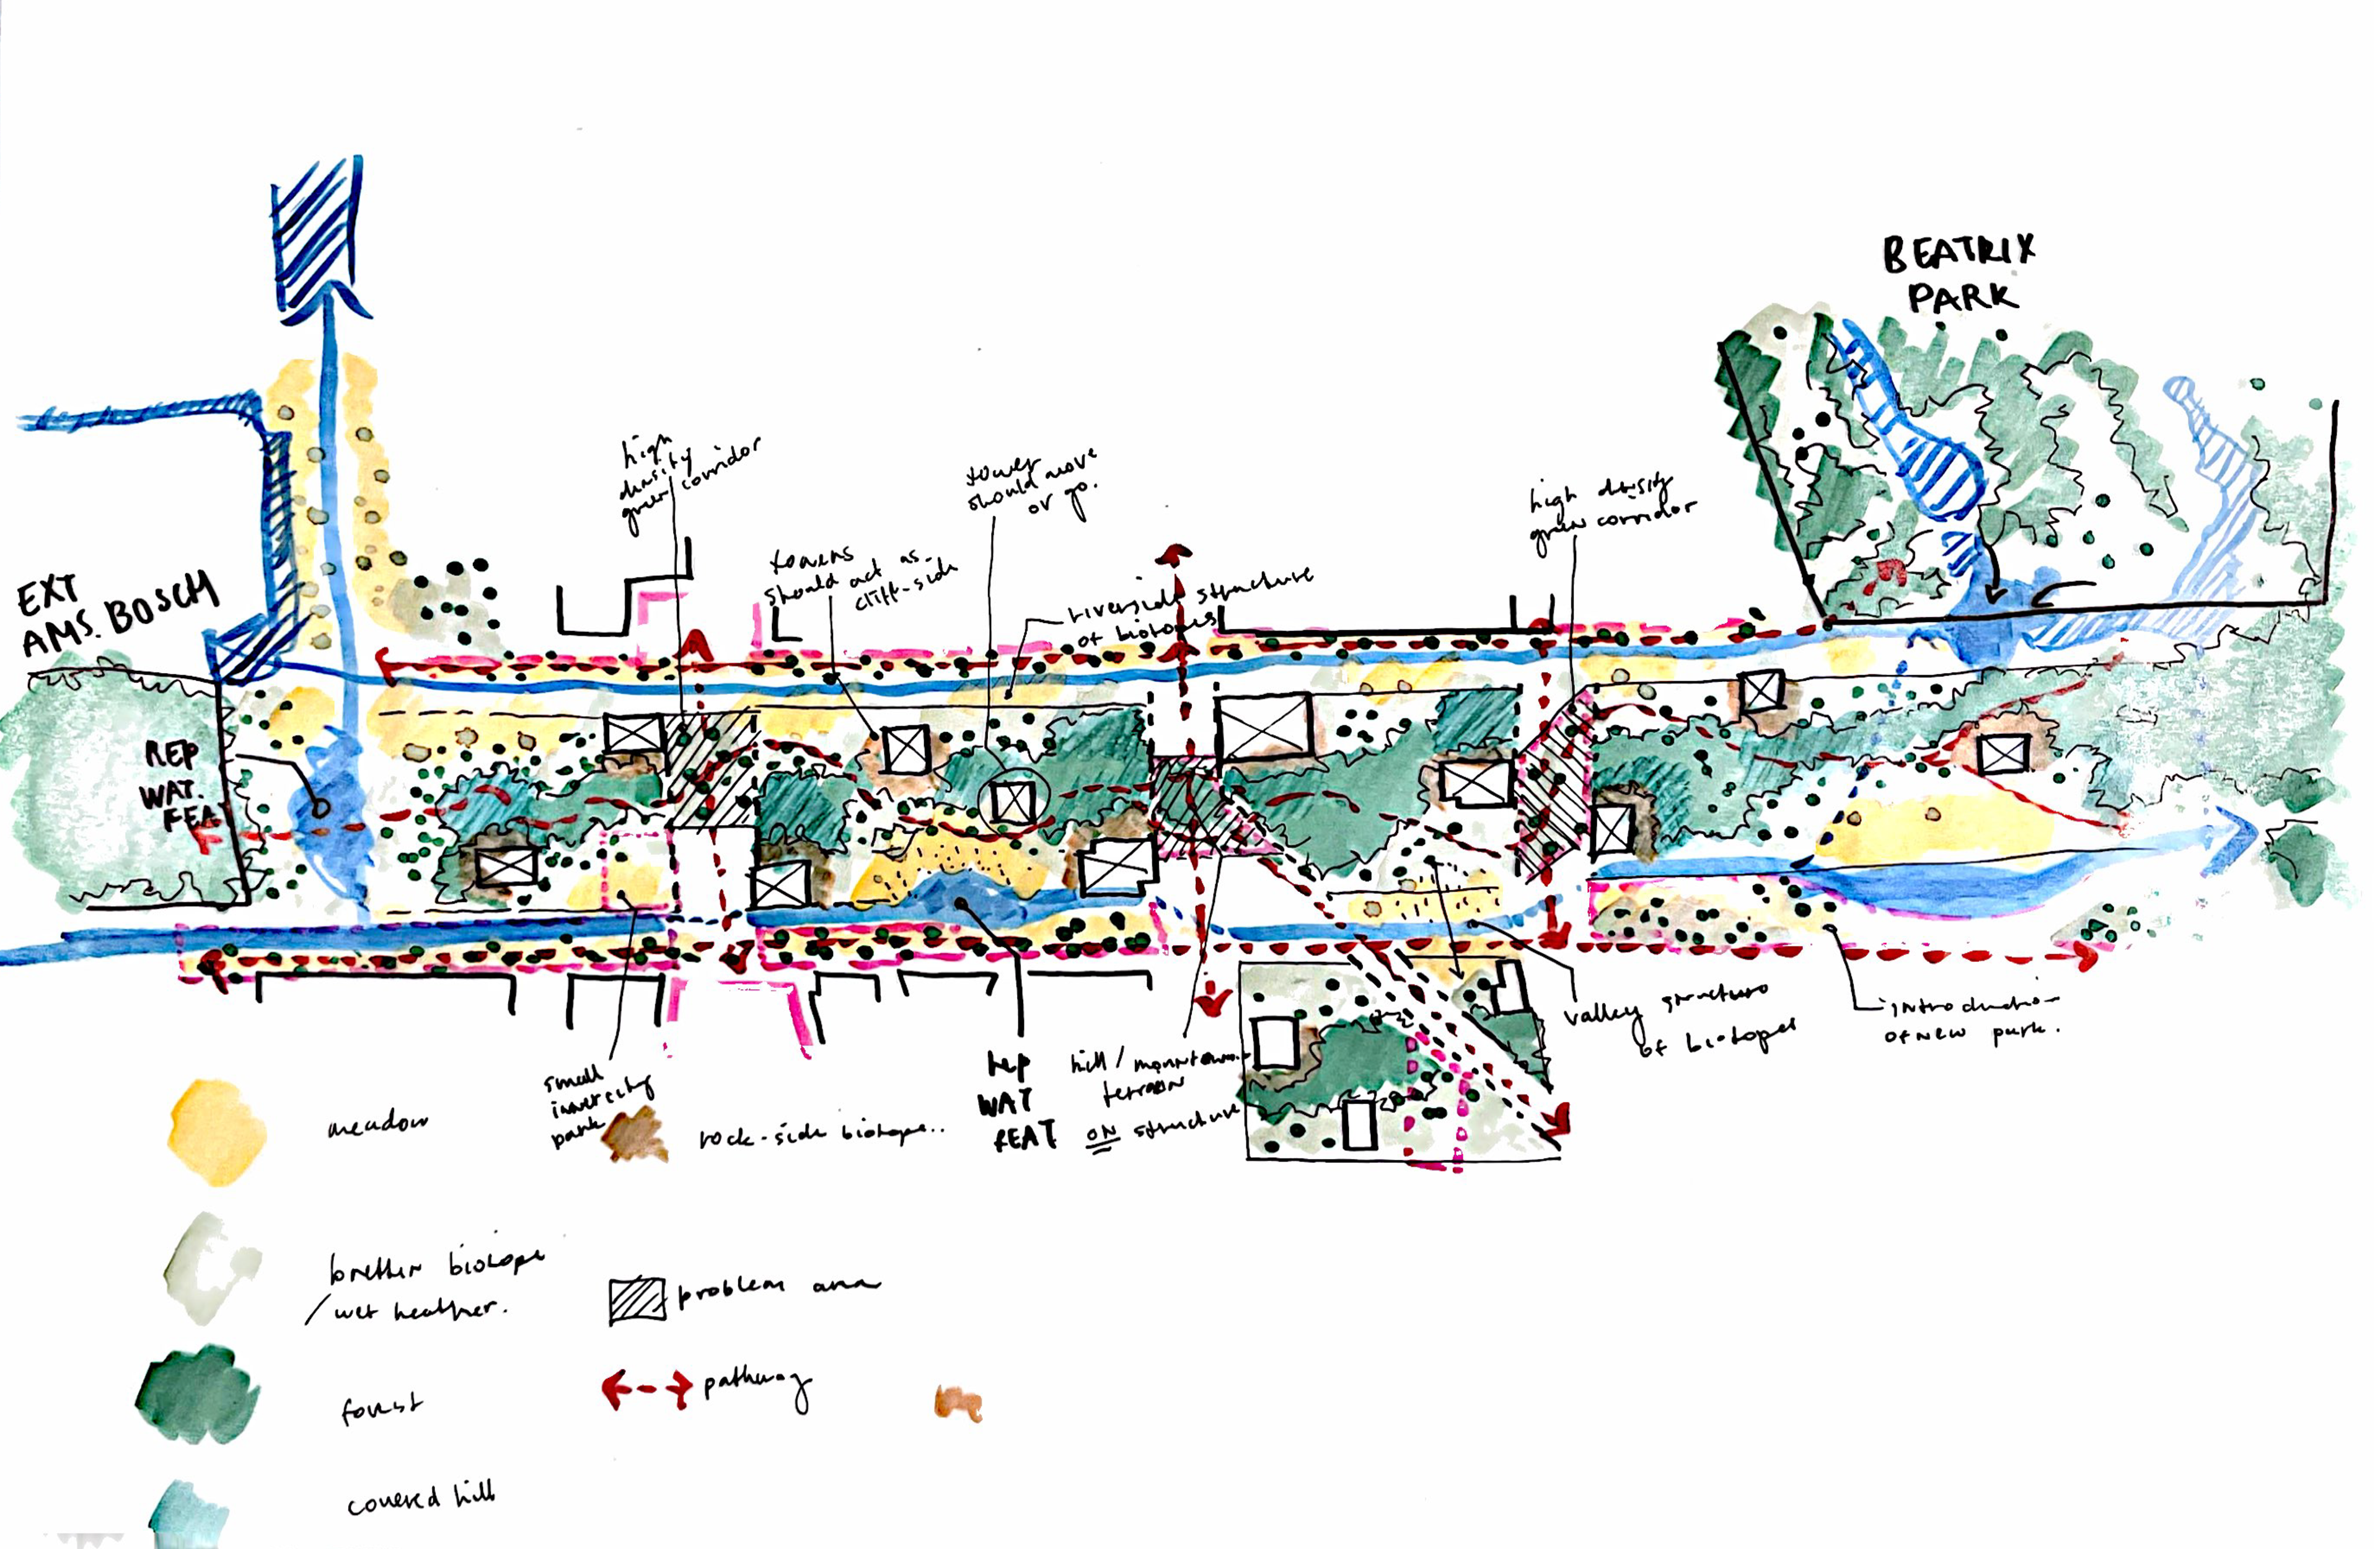 BEATRIX
PARK
high
density
green corridor
tower
should move
or go.
high density
green corridor
towers
should act as
cliff-side
riverside structure
of biotopes
EXT
AMS. BOSCH
REP
WAT.
FEAT
small
innercity
park
REP
WAT
FEAT
hill / mountain
terrain
ON structure
valley structure
of biotopes
introduction
of new park.
meadow
rock-side biotope..
biotope
/wet heather.
problem area
forest
pathway
covered hill